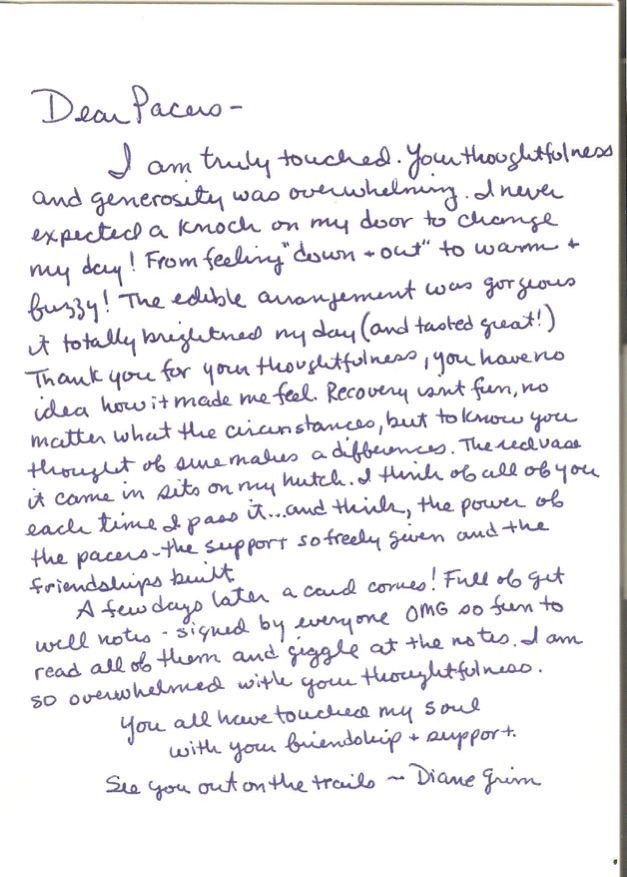 Dear Pacers -
I am truly touched. Your thoughtfulness
and generosity was overwhelming. I never
expected a knock on my door to change
my day! From feeling "down + out" to warm +
fuzzy! The edible arrangement was gorgeous
it totally brightned my day (and tasted great!)
Thank you for your thoughtfulness, you have no
idea how it made me feel. Recovery isnt fun, no
matter what the circumstances, but to know you
thought of sure makes a differences. The red vase
it came in sits on my hutch. I think of all of you
each time I pass it...and think, the power of
the pacers - the support so freely given and the
friendships built.
A few days later a card comes! Full of get
well notes - signed by everyone OMG so fun to
read all of them and giggle at the notes. I am
so overwhelmed with your thoughtfulness.
You all have touched my soul
with your friendship + support.
See you out on the trails ~ Diane Grim